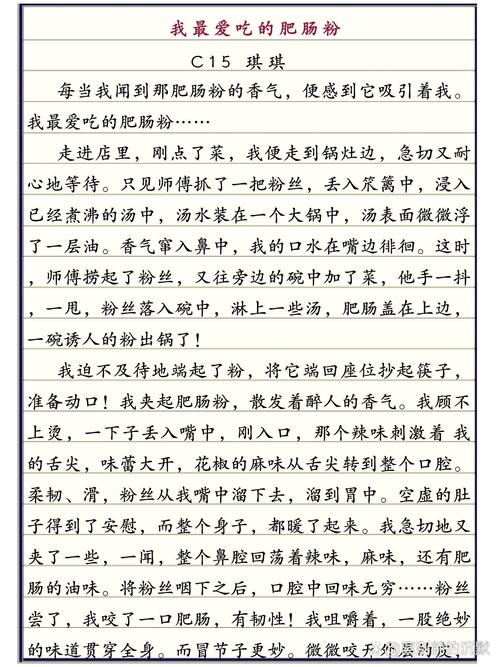 我最爱吃的肥肠粉
C15 琪琪
每当我闻到那肥肠粉的香气，便感到它吸引着我。
我最爱吃的肥肠粉……
走进店里，刚点了菜，我便走到锅灶边，急切又耐
心地等待。只见师傅抓了一把粉丝，丢入笊篱中，浸入
已经煮沸的汤中，汤水装在一个大锅中，汤表面微微浮
了一层油。香气窜入鼻中，我的口水在嘴边徘徊。这时
，师傅捞起了粉丝，又往旁边的碗中加了菜，他手一抖
，一甩，粉丝落入碗中，淋上一些汤，肥肠盖在上边，
一碗诱人的粉出锅了！
我迫不及待地端起了粉，将它端回座位抄起筷子，
准备动口！我夹起肥肠粉，散发着醉人的香气。我顾不
上烫，一下子丢入嘴中，刚入口，那个辣味刺激着 我
的舌尖，味蕾大开，花椒的麻味从舌尖转到整个口腔。
柔韧、滑，粉丝从我嘴中溜下去，溜到胃中。空虚的肚
子得到了安慰，而整个身子，都暖了起来。我急切地又
夹了一些，一闻，整个鼻腔回荡着辣味，麻味，还有肥
肠的油味。将粉丝咽下之后，口腔中回味无穷……粉丝
尝了，我咬了一口肥肠，有韧性！我咀嚼着，一股绝妙
的味道贯穿全身。而冒节子更妙。微微咬开外层的皮，